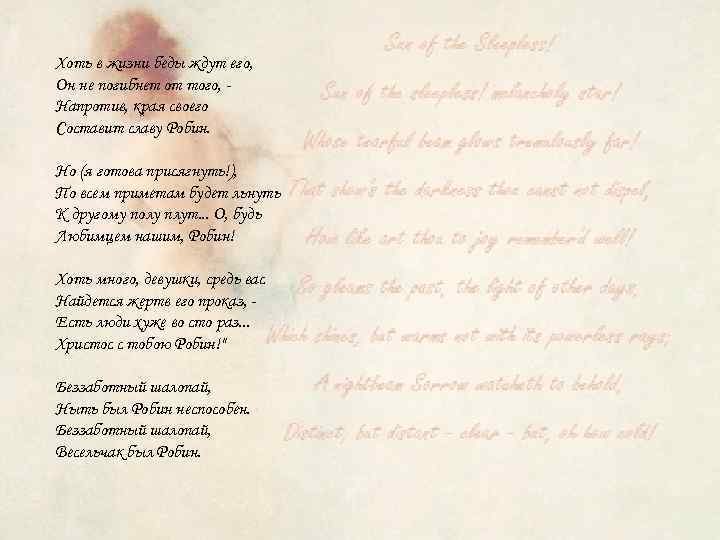 Хоть в жизни беды ждут его,
Он не погибнет от того, -
Напротив, края своего
Составит славу Робин.

Но (я готова присягнуть!),
По всем приметам будет льнуть
К другому полу плут... О, будь
Любимцем нашим, Робин!

Хоть много, девушки, средь вас
Найдется жертв его проказ, -
Есть люди хуже во сто раз...
Христос с тобою Робин!"

Беззаботный шалопай,
Ныть был Робин неспособен.
Беззаботный шалопай,
Весельчак был Робин.

Sun of the Sleepless!
Sun of the sleepless! melancholy star!
Whose tearful beam glows tremulously far!
That show's the darkness thou canst not dispel,
How like art thou to joy remember'd well!
So gleams the past, the light of other days,
Which shines, but warms not with its powerless rays;
A nightbeam Sorrow watcheth to behold,
Distinct, but distant - clear - but, oh how cold!